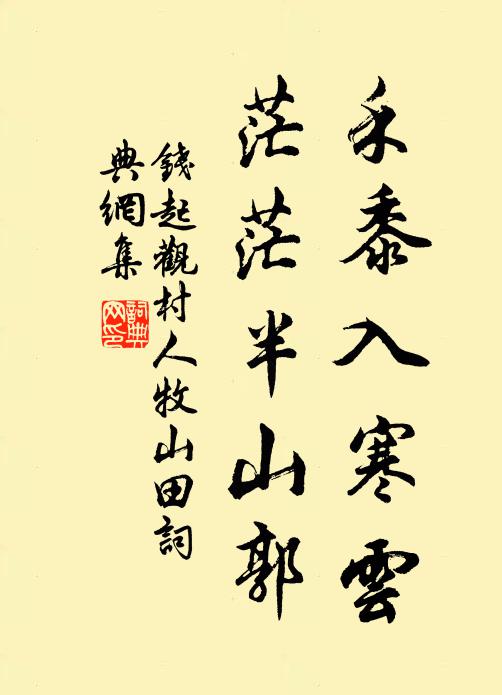 禾黍入寒雲
茫茫半山郭
錢起觀村人牧山田詞
典網集
詞典
网印